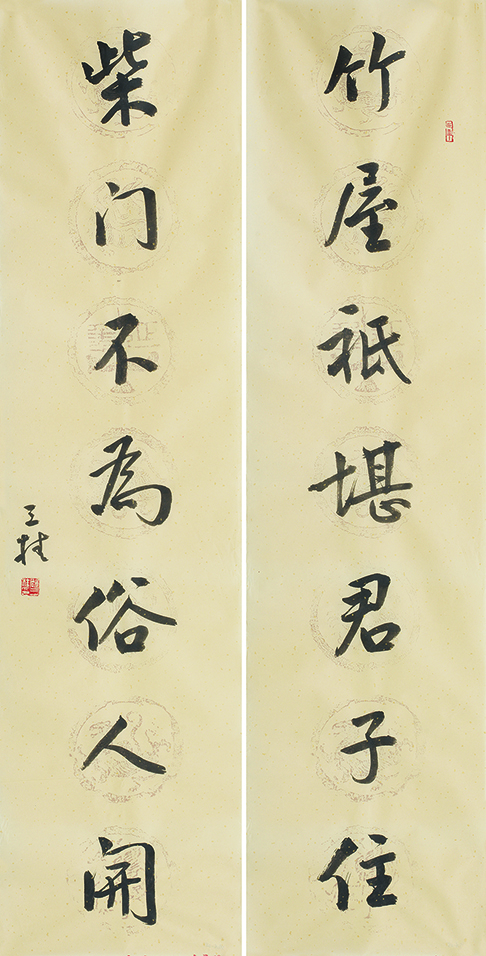 竹屋祗堪君子住
柴门不為俗人開